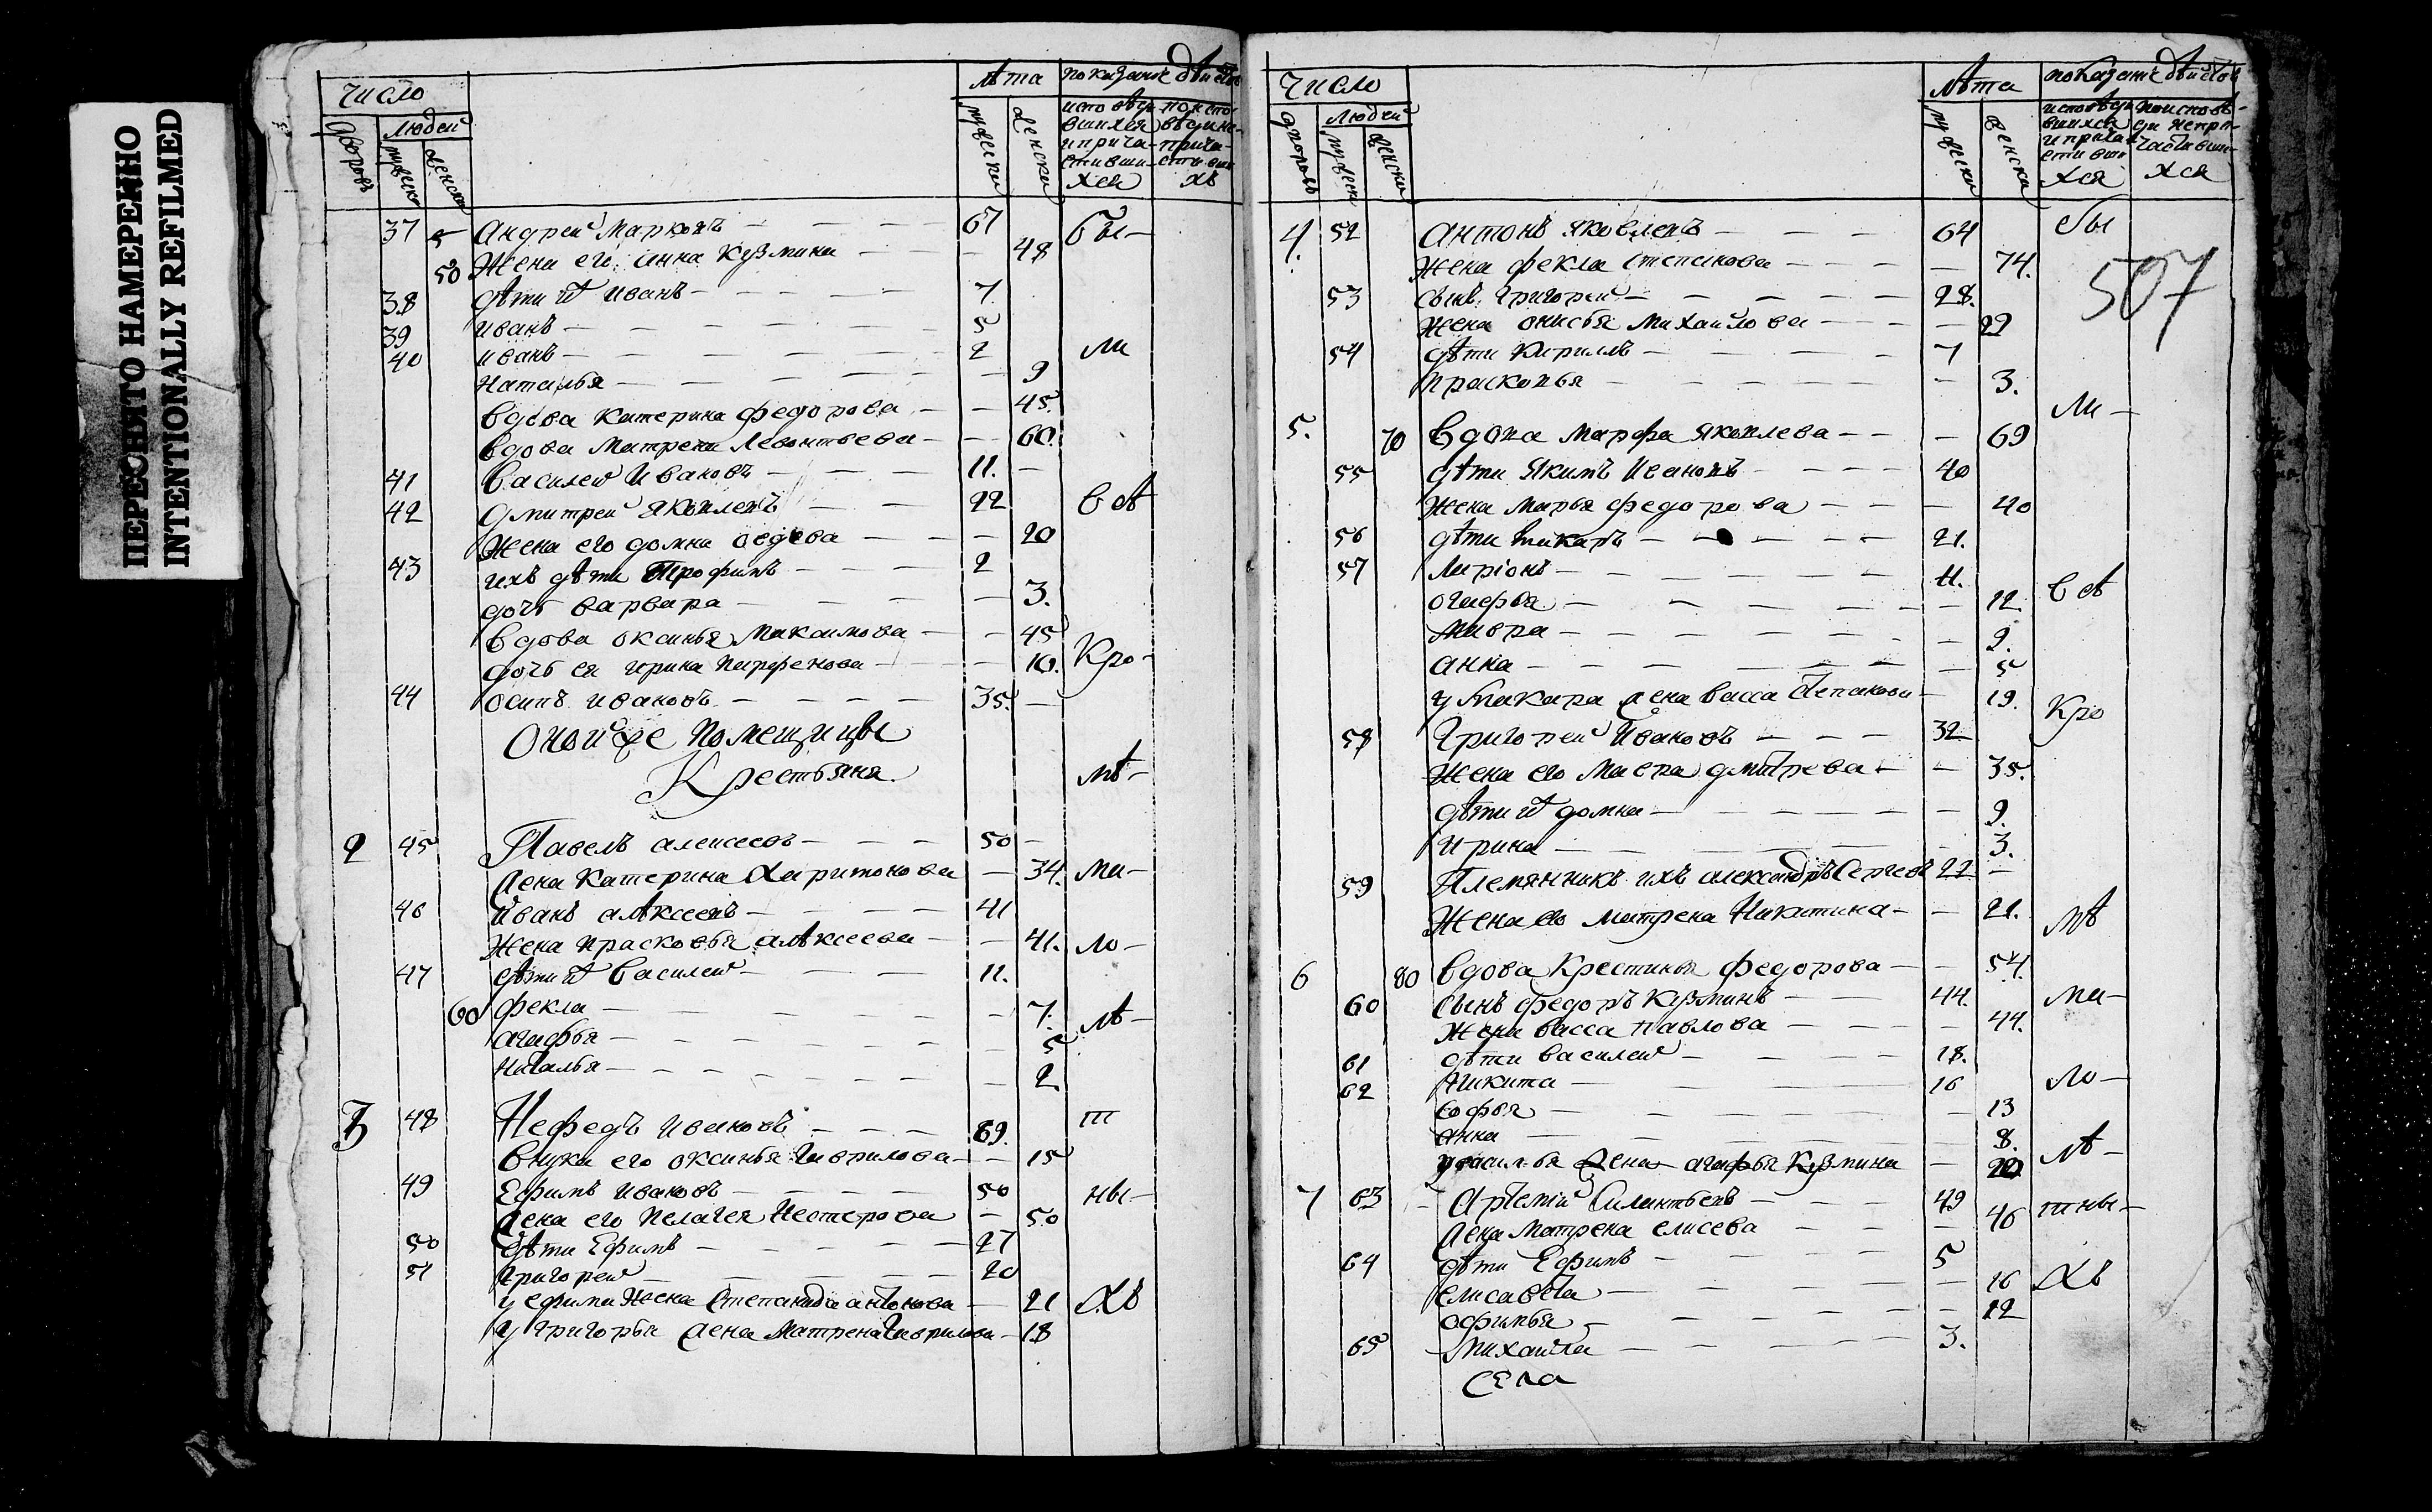 ПЕРЕСНЯТО НАМЕРЕННО
INTENTIONALLY REFILMED
число
лѣта показание дѣиства
Дворовъ людеи мужеска женска
мужески женски
исповѣдавшихся и причастившихся
по исповѣди не причастившихъ
37 Андреи Марковъ — — — 67 бы-
50 Жена ег: анна Кузмина — — 48
38 дѣти ихъ иванъ — — — 7
39 иванъ — — — — 5
40 иванъ — — — — 2 ли
наталья — — — — 9
вдова катерина федорова — — 45.
вдова Матрена Левонтьева — — 60.
41 василеи Ивановъ — — — 11. —
42 дмитреи яковлевъ — — 22 всѣ
Жена его домна — — — 20
43 ихъ дѣти Трофимъ — — — 2
дочь варвара — — — — 3.
вдова оксинья Максимова — — 45
дочь ея ирина парфенова — — 10. Кро-
44 осипъ ивановъ — — — — 35. —
Оной же помещицы
Крестьяна. мѣ-
2 45 Павелъ алексеевъ — — — 50 —
Жена Катерина Харитонова — 34. ма-
46 Иванъ алѣксеевъ — — — — 41
Жена прасковья алѣксеева — — 41. ло-
47 дѣти ихъ василеи — — — 11.
60 фекла — — — — — 7. лѣ-
агафья — — — — — 5
наталья — — — — — 2
3 48 Нефедъ ивановъ — — — 69. т
внука его оксинья Гаврилова — — 15
49 Ефимъ ивановъ — — — — 50 ны-
Жена его пелагея Нестерова — 50
50 дѣти Ефимъ — — — — — 27
51 григореи — — — — — 20
у ефима жена Степанида антонова — 21 хъ
у григорья жена Матрена Гаврилова — 18
число
лѣта показание дѣиства
дворовъ людеи мужеска женска
мужеска женска
исповѣдавшихся и причастившихся
по исповѣди не причастившихся
4. 52 антонъ яковлевъ — — — 64 бы
Жена фекла степанова — — — — 74.
507
53 сынъ григореи — — — — — 28.
Жена онисья михаилова — — — 29
54 дѣти Кирилъ — — — — 7
прасковья — — — — — — 3.
ли —
5. 70 вдова марфа яковлева — — — 69
55 дѣти Якимъ Ивановъ — — — — 40
Жена марья федорова — — — 40
56 дѣти макаръ — — — — — 21.
57 Лирионъ — — — — — 11.
огафья — — — — — — 12. всѣ
мавра — — — — — — 9.
анна — — — — — — 5
у макара жена васса степанова — 19. Кро
58 Григореи Ивановъ — — — 32
Жена его мавра дмитрева — — 35.
дѣти ихъ домна — — — — — 9.
ирина — — — — — 3.
59 Племянникъ ихъ александръ Сергеевъ 22 —
Жена его матрена Никитина — — 21. мѣ
6 80 вдова Крестинья федорова — — 54.
60 сынъ федоръ Кузминъ — — 44. ма-
Жена васса павлова — — — — 44.
61 дѣти василеи — — — — 18.
62 Никита — — — — — 16 ло-
софья — — — — — — 13
анна — — — — — — 8. лѣ-
у василья жена агафья Кузмина — 20
7 63 артемии Силантьевъ — — — 49 тны-
жена Матрена елисева — — — 46
64 дѣти Ефимъ — — — — 5
елисавета — — — — — 16 хъ
офимья — — — — — 12
65 Михаила — — — — 3.
села